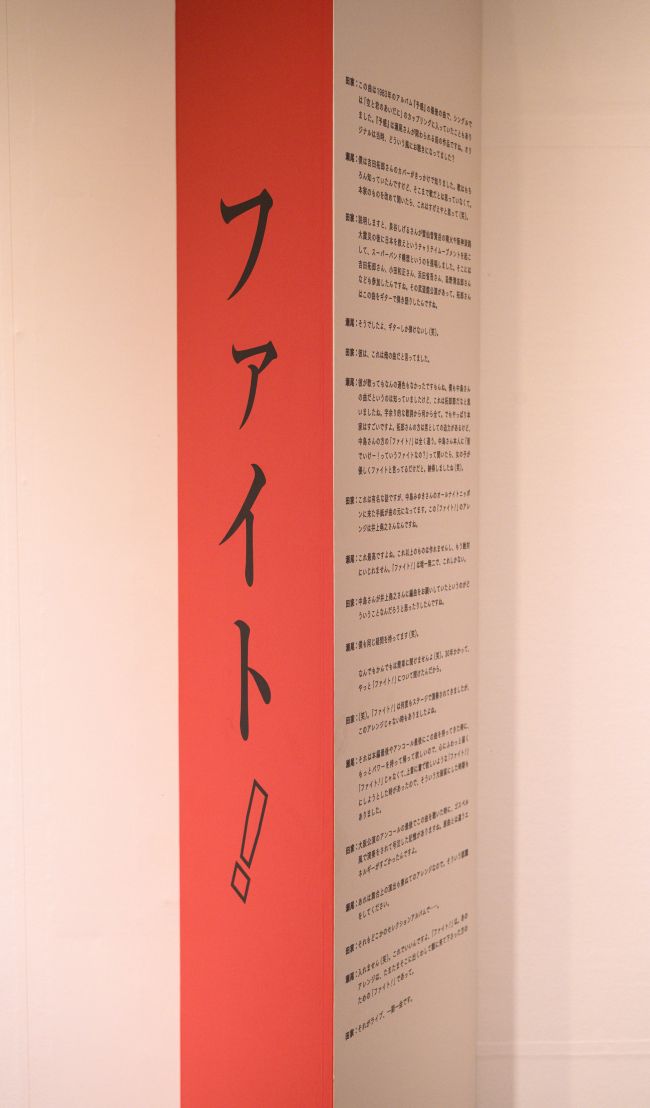 ファイト!
田家:この曲は1983年のアルバム『予感』の最後の曲で、シングルで
は「空と君のあいだに」のカップリングに入っていたこともあり
ました。『予感』は瀬尾さんが関わられる前の作品ですね。オリ
ジナルは当時、どういう風にお聴きになってました?
瀬尾:僕は吉田拓郎さんのカバーがきっかけで知りました。歌はもち
ろん知っていたんですけど、そこまで歌だとは思っていなくて。
本家のものを改めて聞いたら、これはすげえやと思って(笑)。
田家:説明しますと、泉谷しげるさんが雲仙普賢岳の噴火や阪神淡路
大震災の後に日本を救えというチャリティムーブメントを起こ
して、スーパーバンド構想というのを提唱しました。そこには
吉田拓郎さん、小田和正さん、浜田省吾さん、忌野清志郎さん
なども参加したんですね。その武道館公演があって。拓郎さん
はこの曲をギターで弾き語りしたんですね。
瀬尾:そうでしたよ、ギターしか弾けないし(笑)。
田家:彼は、これは俺の曲だと言ってました。
瀬尾:彼が歌ってもなんの遜色もなかったですもんね。僕も中島さん
の曲だというのは知っていましたけど、これは拓郎節だなと思
いましたね。字余り的な歌詞から何から全て。でもやっぱり本
家はすごいですよ。拓郎さんの方は男としての迫力があるけど、
中島さんの方の「ファイト!」は全く違う。中島さん本人に「皆
でいけー!っていうファイトなの?」って聞いたら、女の子が
優しくファイトと言ってるだけだと。納得しましたね(笑)。
田家:これは有名な話ですが、中島みゆきさんのオールナイトニッポ
ンに来た手紙が曲の元になってます。この「ファイト!」のアレ
ンジは井上堯之さんなんですね。
瀬尾:これ最高ですよね。これ以上のものは作れませんし、もう絶対
にいじれません。「ファイト!」は唯一無二で、これしかない。
田家:中島さんが井上堯之さんに編曲をお願いしていたというのがど
ういうことなんだろうと思ったりしたんですね。
瀬尾:僕も同じ疑問を持ってます(笑)。
なんでもかんでもは簡単に聞けませんよ(笑)。30年かかって、
やっと「ファイト!」について聞けたんだから。
田家:(笑)。「ファイト!」は何度もステージで演奏されてきましたが、
このアレンジじゃない時もありましたよね。
瀬尾:それは本編最後やアンコール最後にこの曲を持ってきた時に、
もっとパワーを持って帰って欲しいので、心にふわっと届く
「ファイト!」じゃなくて、上着に着て欲しいような「ファイト!」
にしようとした時があったので、そういう大袈裟にした時期も
ありました。
田家:大阪公演のアンコールの最後でこの曲を聴いた時に、ゴスペル
風で演奏をされて号泣した記憶がありますね。原曲とは違うエ
ネルギーがすごかったんですよ。
瀬尾:あれは舞台上の演出も兼ねてのアレンジなので。そういう認識
をしてください。
田家:それもどこかのセレクションアルバムで…。
瀬尾:入れません(笑)。これでいいんですよ、「ファイト!」は。あの
アレンジは、たまたまそこに出くわして観に来て下さった方の
ための「ファイト!」であって。
田家:それがライブ、一期一会です。